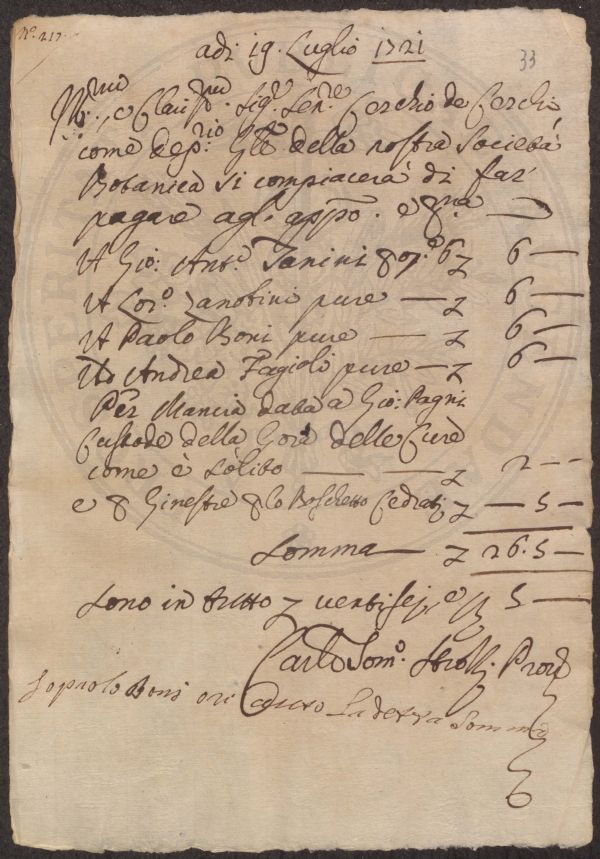 N.º 217.
33
adi 19. Luglio 1721
M.mo, e Claris.mo Sig.re Sen.re Cerchio de Cerchi
come dep.rio Gle della nostra Società
Botanica si compiacerà di far
pagare agl'appo. e
A Gio: Ant.º Tanini op.e 6 z 6 —
A Lor.º Zanobini pure — z 6 —
A Paolo Boni pure — z 6 —
Ad Andrea Fagioli pure — z 6 —
Per Mancia data a Gio: Pagni
Custode della Gora delle Cure
come è solito — — z 2 --
e Ginestre lo Boschetto Cedrati z — 5 —
Somma — z 26. 5 —
Sono in tutto z ventisej, e 5 —
Carlo Tom.º Strozzi Prov.
Io paolo Boni o ri ceuuto La detta Somma